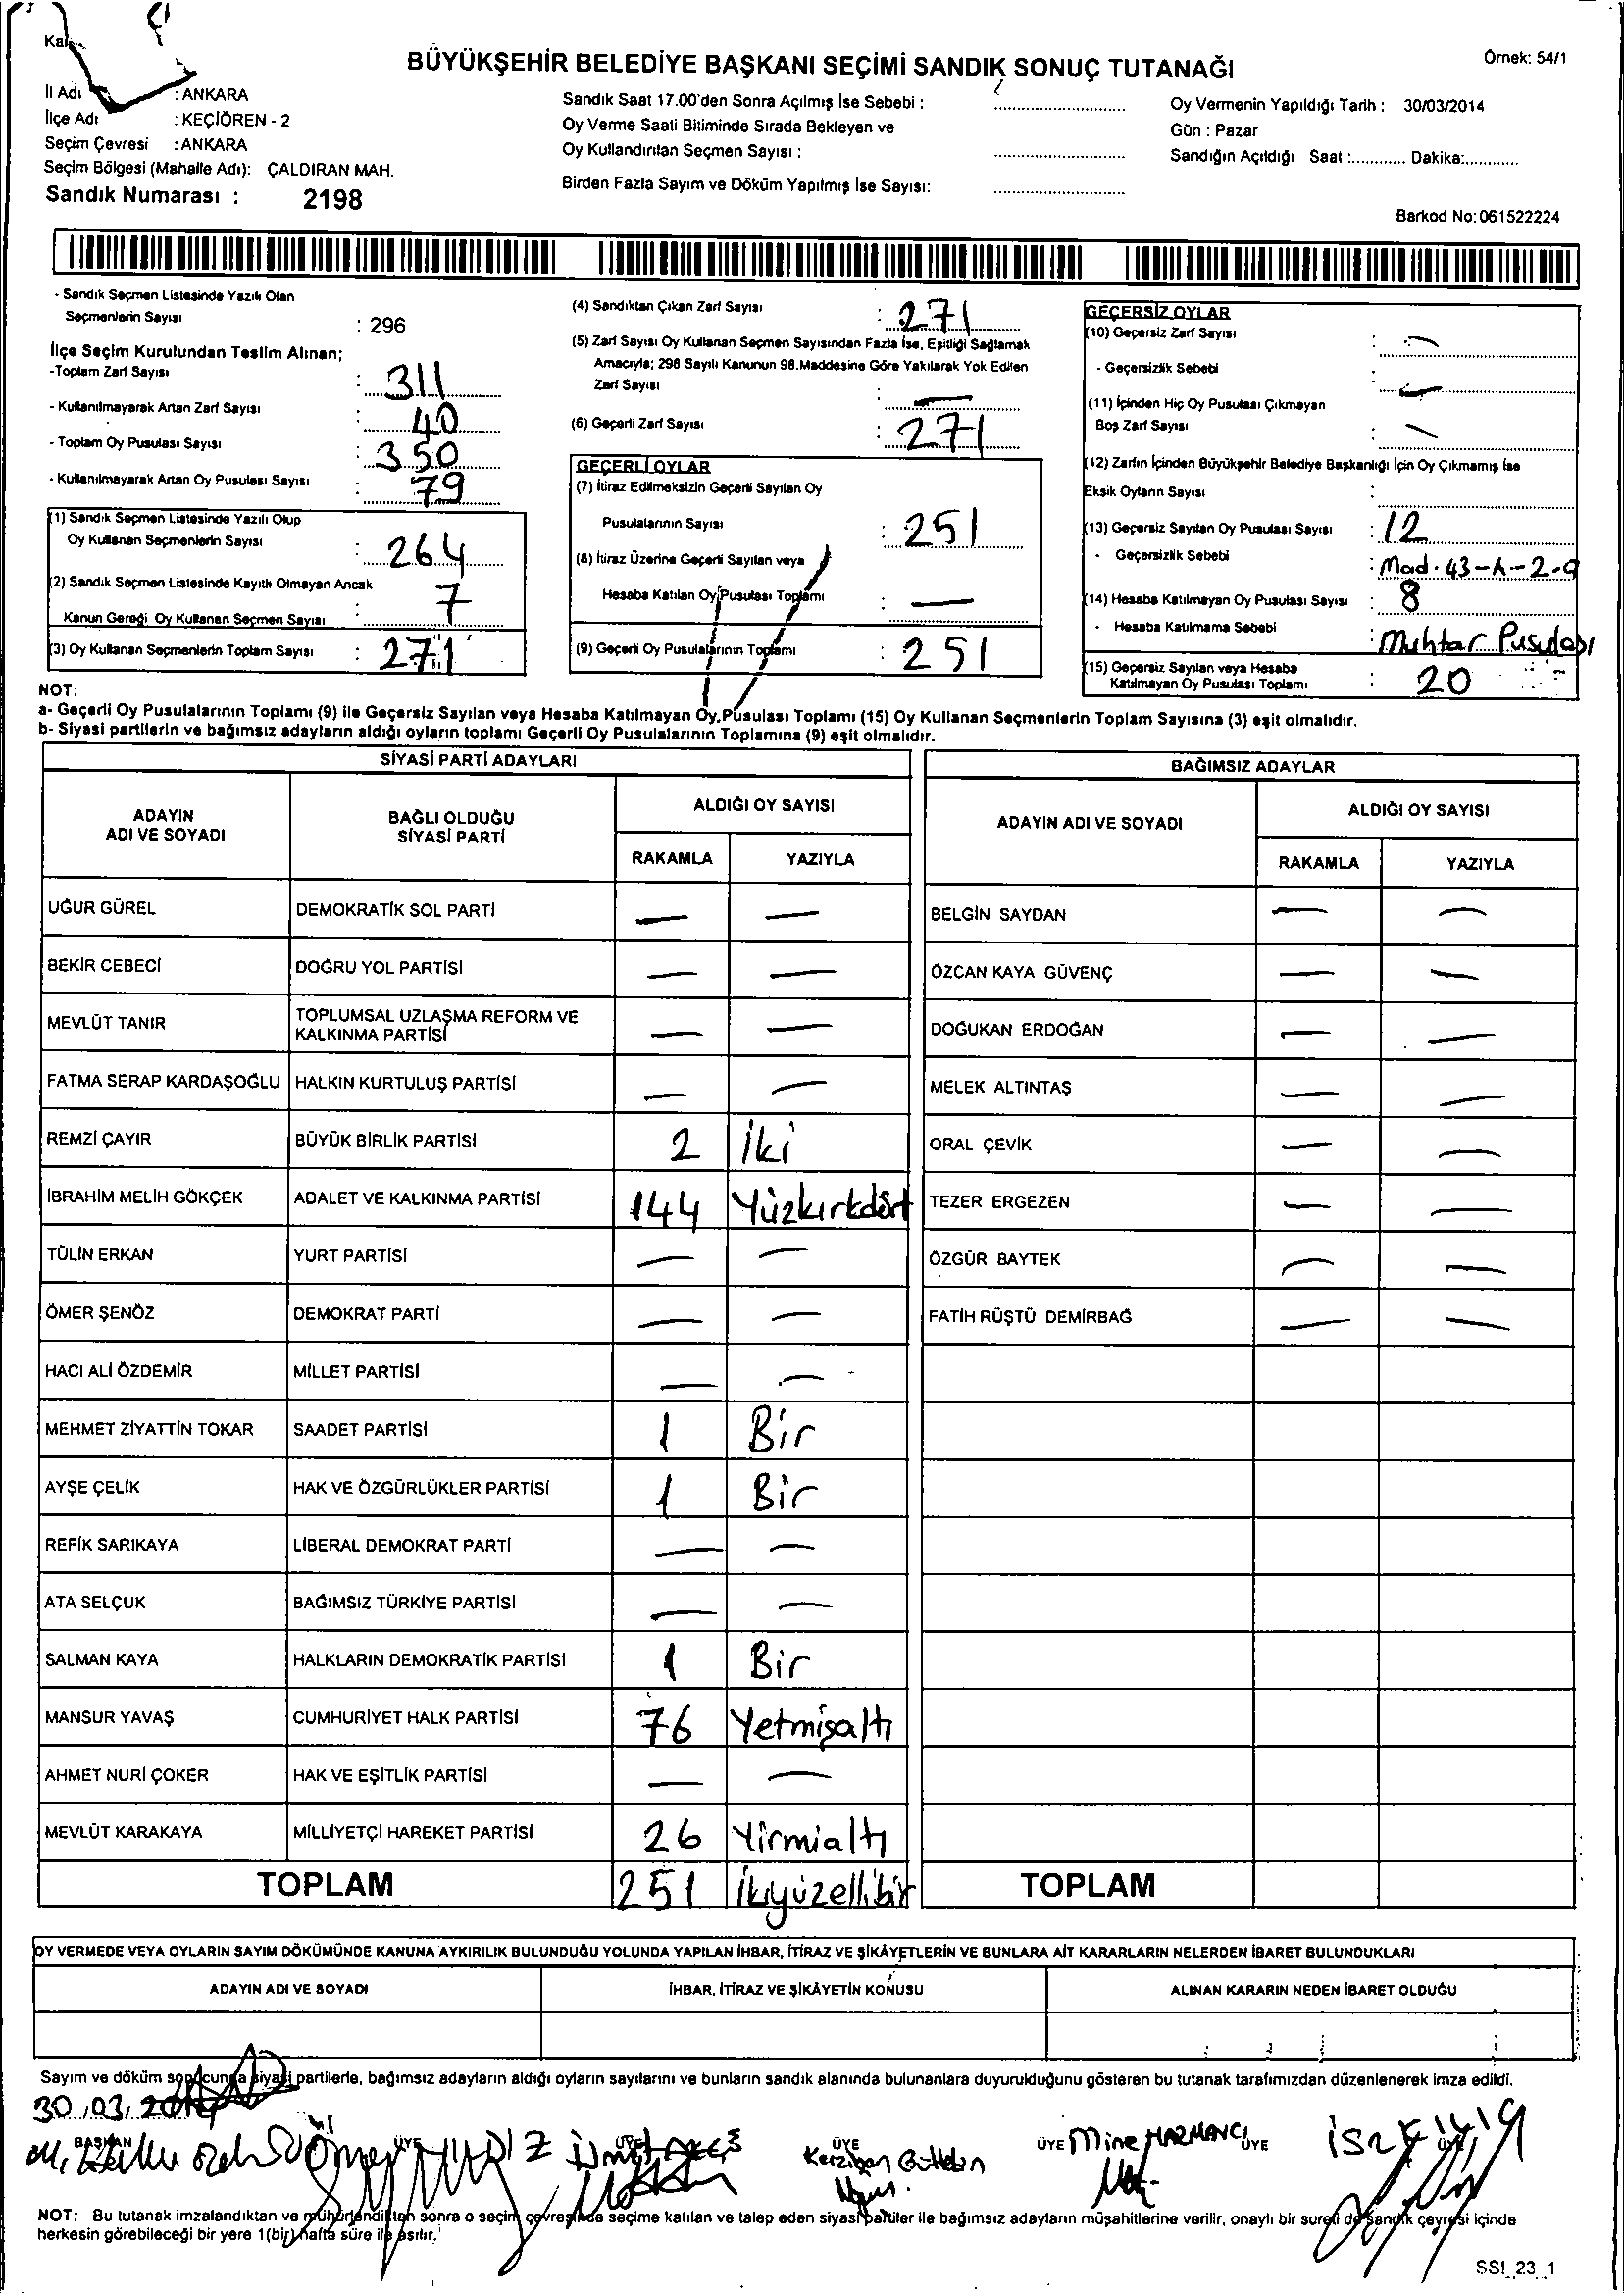 BÜYÜKŞEHİR BELEDİYE BAŞKANI SEÇİMİ SANDIK SONUÇ TUTANAĞI
Örnek: 54/1
İl Adı : ANKARA
İlçe Adı : KEÇİÖREN - 2
Seçim Çevresi : ANKARA
Seçim Bölgesi (Mahalle Adı): ÇALDIRAN MAH.
Sandık Numarası : 2198
Sandık Saat 17.00'den Sonra Açılmış İse Sebebi : ....................
Oy Verme Saati Bitiminde Sırada Bekleyen ve
Oy Kullandırılan Seçmen Sayısı : ....................
Birden Fazla Sayım ve Döküm Yapılmış İse Sayısı: ....................
Oy Vermenin Yapıldığı Tarih : 30/03/2014
Gün : Pazar
Sandığın Açıldığı Saat :............ Dakika:............
Barkod No:061522224
- Sandık Seçmen Listesinde Yazılı Olan
Seçmenlerin Sayısı : 296
İlçe Seçim Kurulundan Teslim Alınan;
-Toplam Zarf Sayısı : 311
- Kullanılmayarak Artan Zarf Sayısı : 40
- Toplam Oy Pusulası Sayısı : 350
- Kullanılmayarak Artan Oy Pusulası Sayısı : 79
(1) Sandık Seçmen Listesinde Yazılı Olup
Oy Kullanan Seçmenlerin Sayısı : 264
(2) Sandık Seçmen Listesinde Kayıtlı Olmayan Ancak
Kanun Gereği Oy Kullanan Seçmen Sayısı : 7
(3) Oy Kullanan Seçmenlerin Toplam Sayısı : 271
(4) Sandıktan Çıkan Zarf Sayısı : 271
(5) Zarf Sayısı Oy Kullanan Seçmen Sayısından Fazla İse, Eşitliği Sağlamak
Amacıyla; 298 Sayılı Kanunun 98.Maddesine Göre Yakılarak Yok Edilen
Zarf Sayısı : —
(6) Geçerli Zarf Sayısı : 271
GEÇERLİ OYLAR
(7) İtiraz Edilmeksizin Geçerli Sayılan Oy
Pusulalarının Sayısı : 251
(8) İtiraz Üzerine Geçerli Sayılan veya
Hesaba Katılan Oy Pusulası Toplamı : —
(9) Geçerli Oy Pusulalarının Toplamı : 251
GEÇERSİZ OYLAR
(10) Geçersiz Zarf Sayısı : —
- Geçersizlik Sebebi : —
(11) İçinden Hiç Oy Pusulası Çıkmayan
Boş Zarf Sayısı : —
(12) Zarfın İçinden Büyükşehir Belediye Başkanlığı İçin Oy Çıkmamış İse
Eksik Oyların Sayısı :
(13) Geçersiz Sayılan Oy Pusulası Sayısı : 12
- Geçersizlik Sebebi : Mad. 43-A-2-g
(14) Hesaba Katılmayan Oy Pusulası Sayısı : 8
- Hesaba Katılmama Sebebi : Muhtar Pusulası
(15) Geçersiz Sayılan veya Hesaba
Katılmayan Oy Pusulası Toplamı : 20
NOT:
a- Geçerli Oy Pusulalarının Toplamı (9) ile Geçersiz Sayılan veya Hesaba Katılmayan Oy Pusulası Toplamı (15) Oy Kullanan Seçmenlerin Toplam Sayısına (3) eşit olmalıdır.
b- Siyasi partilerin ve bağımsız adayların aldığı oyların toplamı Geçerli Oy Pusulalarının Toplamına (9) eşit olmalıdır.
SİYASİ PARTİ ADAYLARI
ADAYIN ADI VE SOYADI BAĞLI OLDUĞU SİYASİ PARTİ ALDIĞI OY SAYISI
RAKAMLA YAZIYLA
UĞUR GÜREL DEMOKRATİK SOL PARTİ — —
BEKİR CEBECİ DOĞRU YOL PARTİSİ — —
MEVLÜT TANIR TOPLUMSAL UZLAŞMA REFORM VE KALKINMA PARTİSİ — —
FATMA SERAP KARDAŞOĞLU HALKIN KURTULUŞ PARTİSİ — —
REMZİ ÇAYIR BÜYÜK BİRLİK PARTİSİ 2 İki
İBRAHİM MELİH GÖKÇEK ADALET VE KALKINMA PARTİSİ 144 Yüzkırkdört
TÜLİN ERKAN YURT PARTİSİ — —
ÖMER ŞENÖZ DEMOKRAT PARTİ — —
HACI ALİ ÖZDEMİR MİLLET PARTİSİ — —
MEHMET ZİYATTİN TOKAR SAADET PARTİSİ 1 Bir
AYŞE ÇELİK HAK VE ÖZGÜRLÜKLER PARTİSİ 1 Bir
REFİK SARIKAYA LİBERAL DEMOKRAT PARTİ — —
ATA SELÇUK BAĞIMSIZ TÜRKİYE PARTİSİ — —
SALMAN KAYA HALKLARIN DEMOKRATİK PARTİSİ 1 Bir
MANSUR YAVAŞ CUMHURİYET HALK PARTİSİ 76 Yetmişaltı
AHMET NURİ ÇOKER HAK VE EŞİTLİK PARTİSİ — —
MEVLÜT KARAKAYA MİLLİYETÇİ HAREKET PARTİSİ 26 Yirmialtı
TOPLAM 251 İkiyüzellibir
BAĞIMSIZ ADAYLAR
ADAYIN ADI VE SOYADI ALDIĞI OY SAYISI
RAKAMLA YAZIYLA
BELGİN SAYDAN — —
ÖZCAN KAYA GÜVENÇ — —
DOĞUKAN ERDOĞAN — —
MELEK ALTINTAŞ — —
ORAL ÇEVİK — —
TEZER ERGEZEN — —
ÖZGÜR BAYTEK — —
FATİH RÜŞTÜ DEMİRBAĞ — —
TOPLAM
OY VERMEDE VEYA OYLARIN SAYIM DÖKÜMÜNDE KANUNA AYKIRILIK BULUNDUĞU YOLUNDA YAPILAN İHBAR, İTİRAZ VE ŞİKÂYETLERİN VE BUNLARA AİT KARARLARIN NELERDEN İBARET BULUNDUKLARI
ADAYIN ADI VE SOYADI İHBAR, İTİRAZ VE ŞİKÂYETİN KONUSU ALINAN KARARIN NEDEN İBARET OLDUĞU
Sayım ve döküm sonucunda siyasi partilerle, bağımsız adayların aldığı oyların sayılarını ve bunların sandık alanında bulunanlara duyurulduğunu gösteren bu tutanak tarafımızdan düzenlenerek imza edildi.
30.03.2014
BAŞKAN ÜYE ÜYE ÜYE ÜYE ÜYE ÜYE
Ömer YILDIZ Mine HARMANCI
NOT: Bu tutanak imzalandıktan ve mühürlendikten sonra o seçim çevresinde seçime katılan ve talep eden siyasi partiler ile bağımsız adayların müşahitlerine verilir, onaylı bir sureti de sandık çevresi içinde
herkesin görebileceği bir yere 1(bir) hafta süre ile asılır.
SSİ_23_1